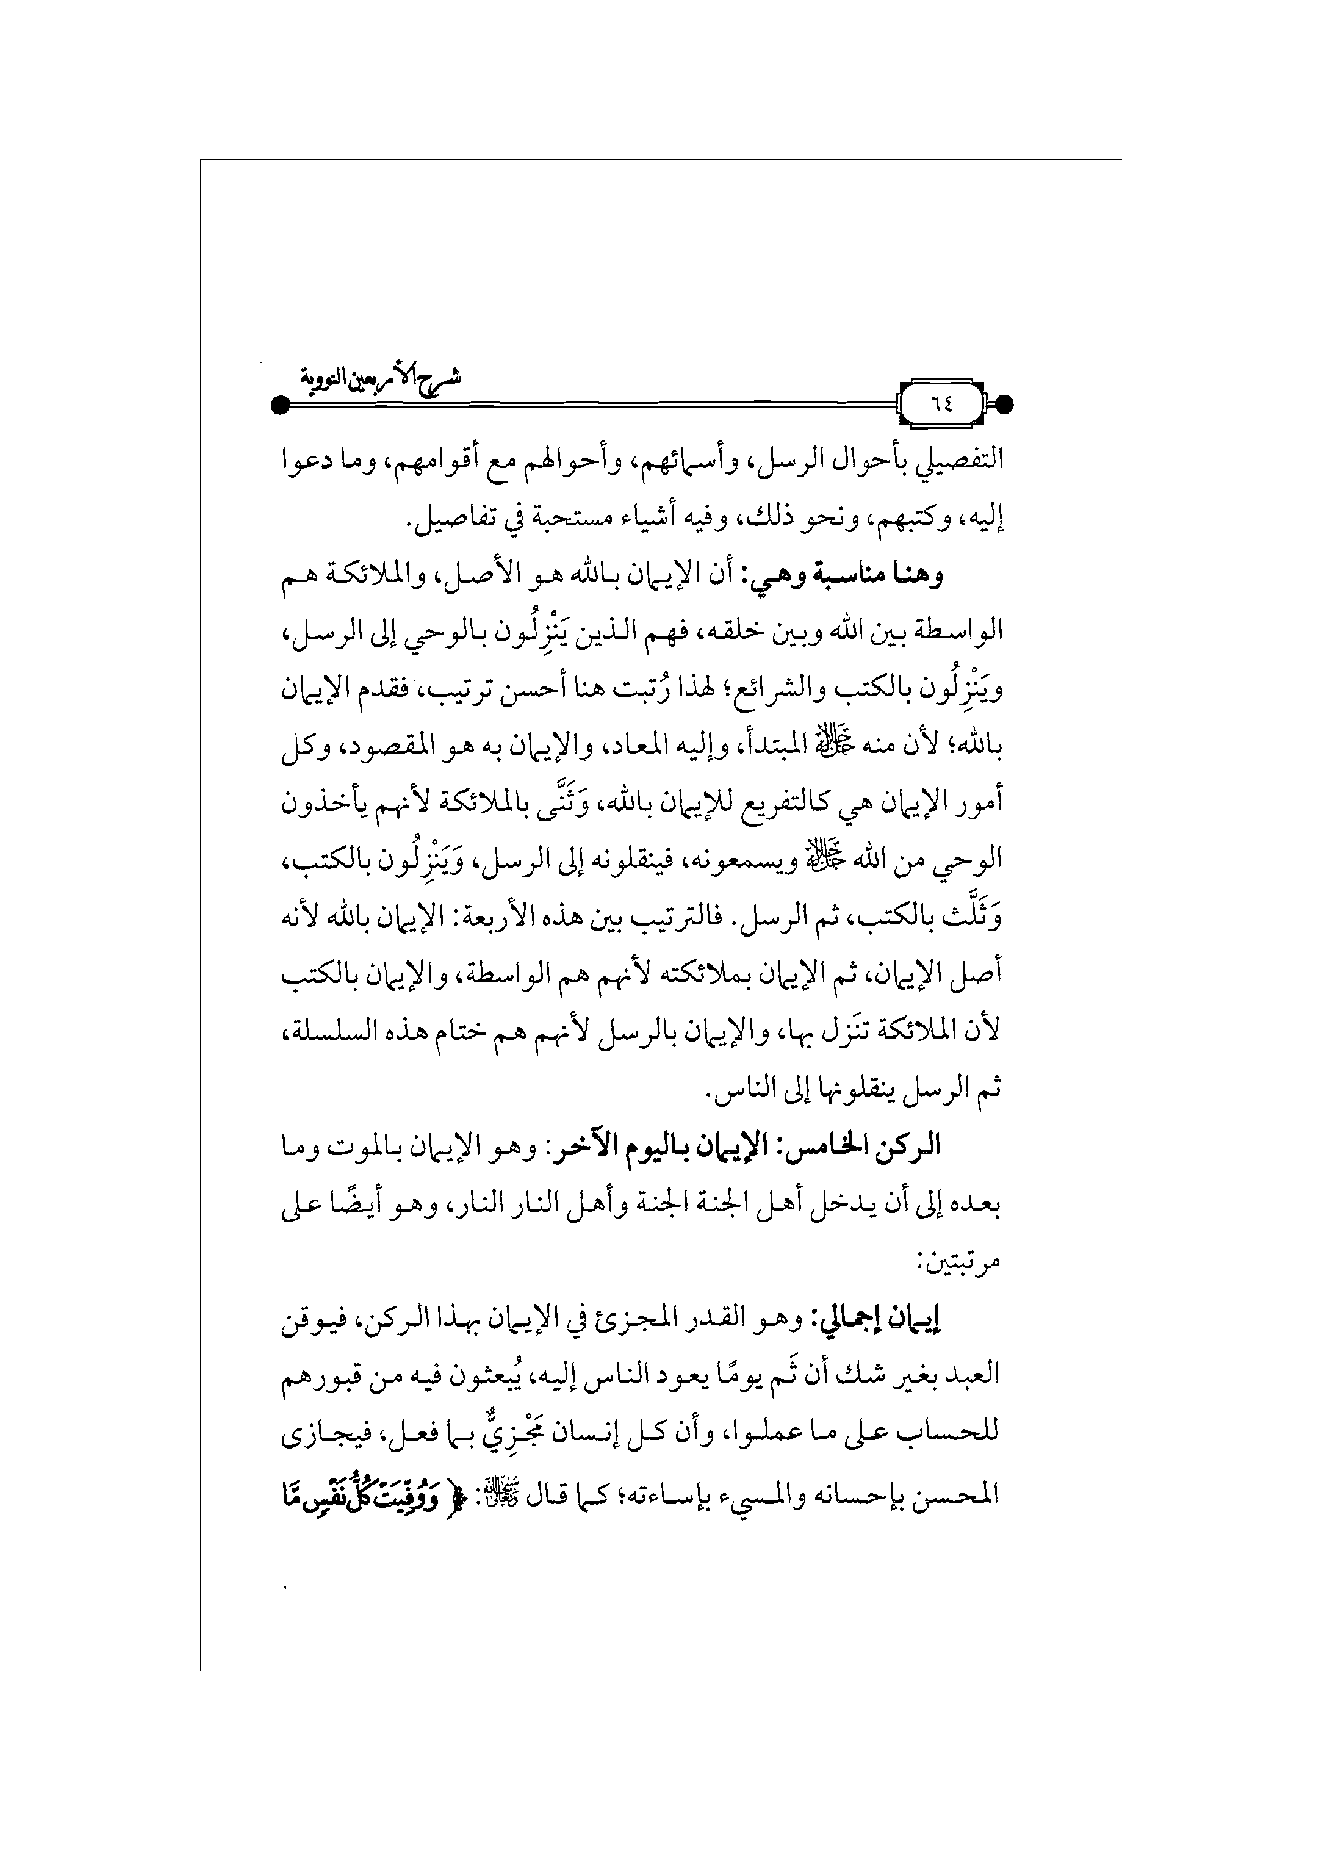 شرح الأربعين النووية
٦٤
التفصيلي بأحوال الرسل، وأسمائهم، وأحوالهم مع أقوامهم، وما دعوا
إليه، وكتبهم، ونحو ذلك، وفيه أشياء مستحبة في تفاصيل.
وهنا مناسبة وهي: أن الإيمان بالله هو الأصل، والملائكة هم
الواسطة بين الله وبين خلقه، فهم الذين يَنْزِلُون بالوحي إلى الرسل،
ويَنْزِلُون بالكتب والشرائع؛ لهذا رُتبت هنا أحسن ترتيب، فقدم الإيمان
بالله؛ لأن منه ﷻ المبتدأ، وإليه المعاد، والإيمان به هو المقصود، وكل
أمور الإيمان هي كالتفريع للإيمان بالله، وَثَنَّى بالملائكة لأنهم يأخذون
الوحي من الله ﷻ ويسمعونه، فينقلونه إلى الرسل، وَيَنْزِلُون بالكتب،
وَثَلَّث بالكتب، ثم الرسل. فالترتيب بين هذه الأربعة: الإيمان بالله لأنه
أصل الإيمان، ثم الإيمان بملائكته لأنهم هم الواسطة، والإيمان بالكتب
لأن الملائكة تنَزل بها، والإيمان بالرسل لأنهم هم ختام هذه السلسلة،
ثم الرسل ينقلونها إلى الناس.
الركن الخامس: الإيمان باليوم الآخر: وهو الإيمان بالموت وما
بعده إلى أن يدخل أهل الجنة الجنة وأهل النار النار، وهو أيضًا على
مرتبتين:
إيمان إجمالي: وهو القدر المجزئ في الإيمان بهذا الركن، فيوقن
العبد بغير شك أن ثَم يومًا يعود الناس إليه، يُبعثون فيه من قبورهم
للحساب على ما عملوا، وأن كل إنسان مَجْزِيٌّ بما فعل، فيجازى
المحسن بإحسانه والمسيء بإساءته؛ كما قال ﷾: ﴿ وَوُفِّيَتْ كُلُّ نَفْسٍ مَّا